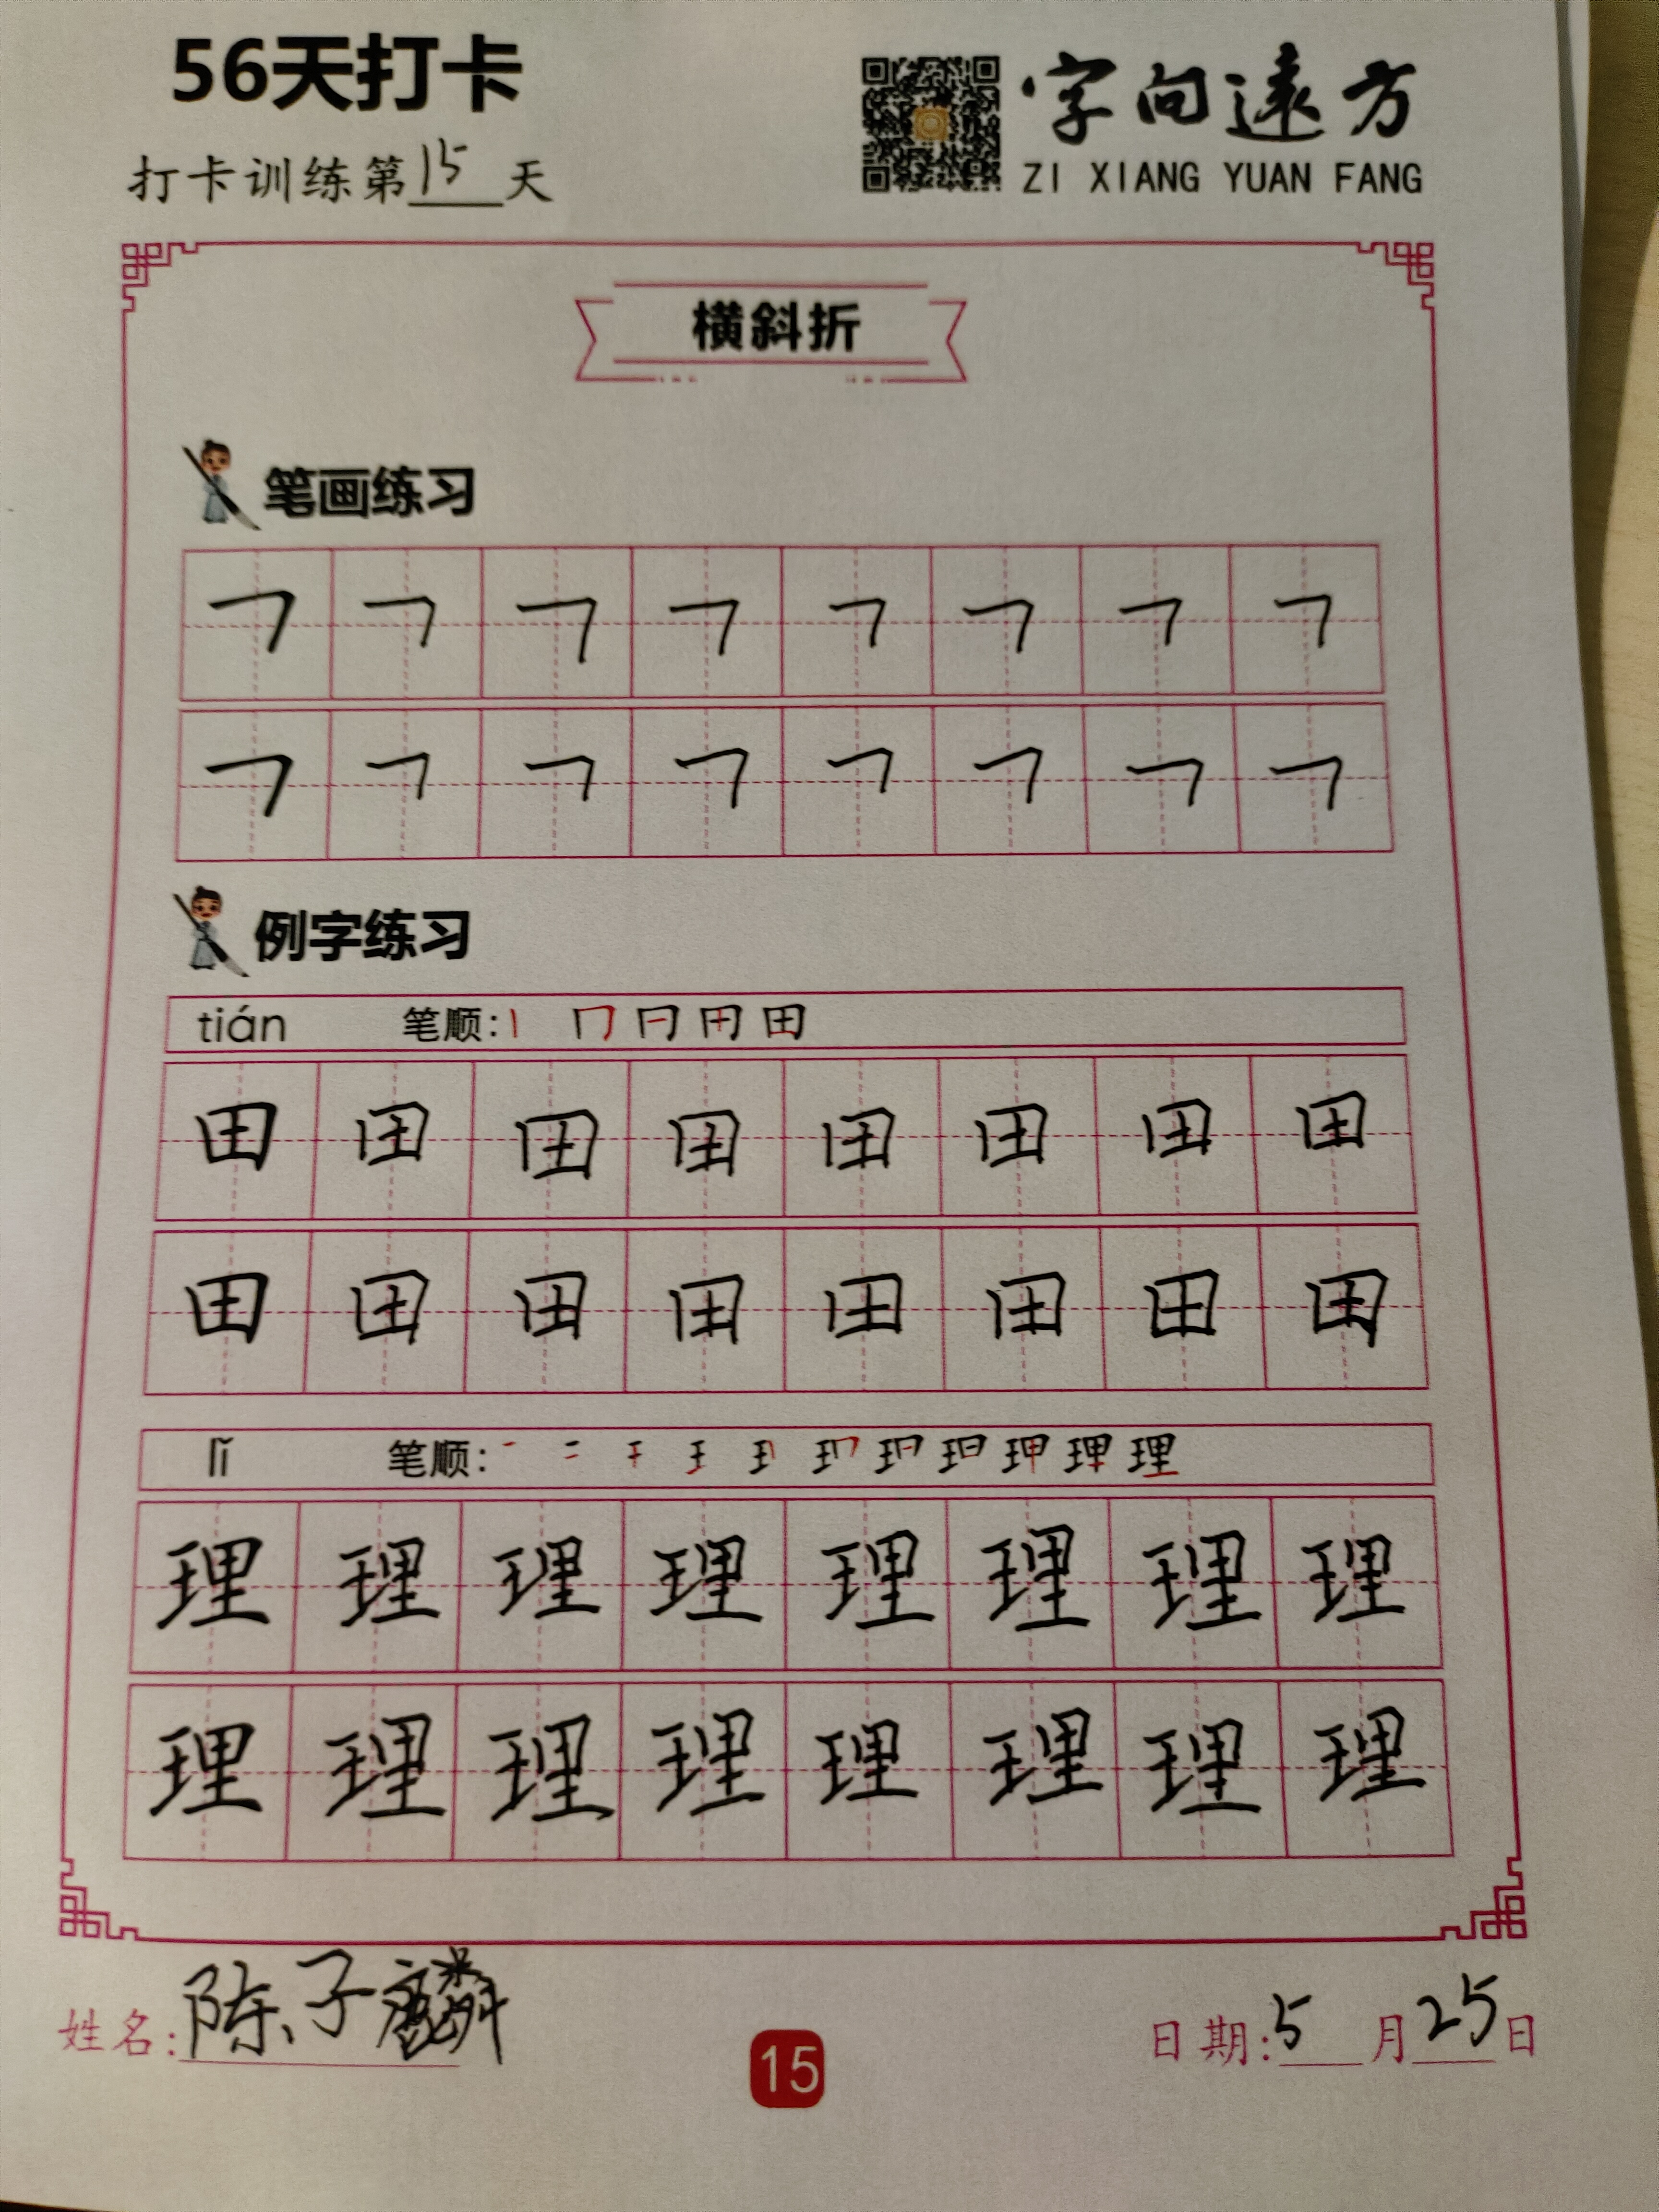 56天打卡
字向遠方
打卡训练第15天
ZI XIANG YUAN FANG
横斜折
笔画练习
㇕ ㇕ ㇕ ㇕ ㇕ ㇕ ㇕ ㇕
㇕ ㇕ ㇕ ㇕ ㇕ ㇕ ㇕ ㇕
例字练习
tián 笔顺: 丨 冂 日 用 田
田 田 田 田 田 田 田 田
田 田 田 田 田 田 田 田
lǐ 笔顺:
理 理 理 理 理 理 理 理
理 理 理 理 理 理 理 理
姓名:陈子麟
日期:5月25日
15